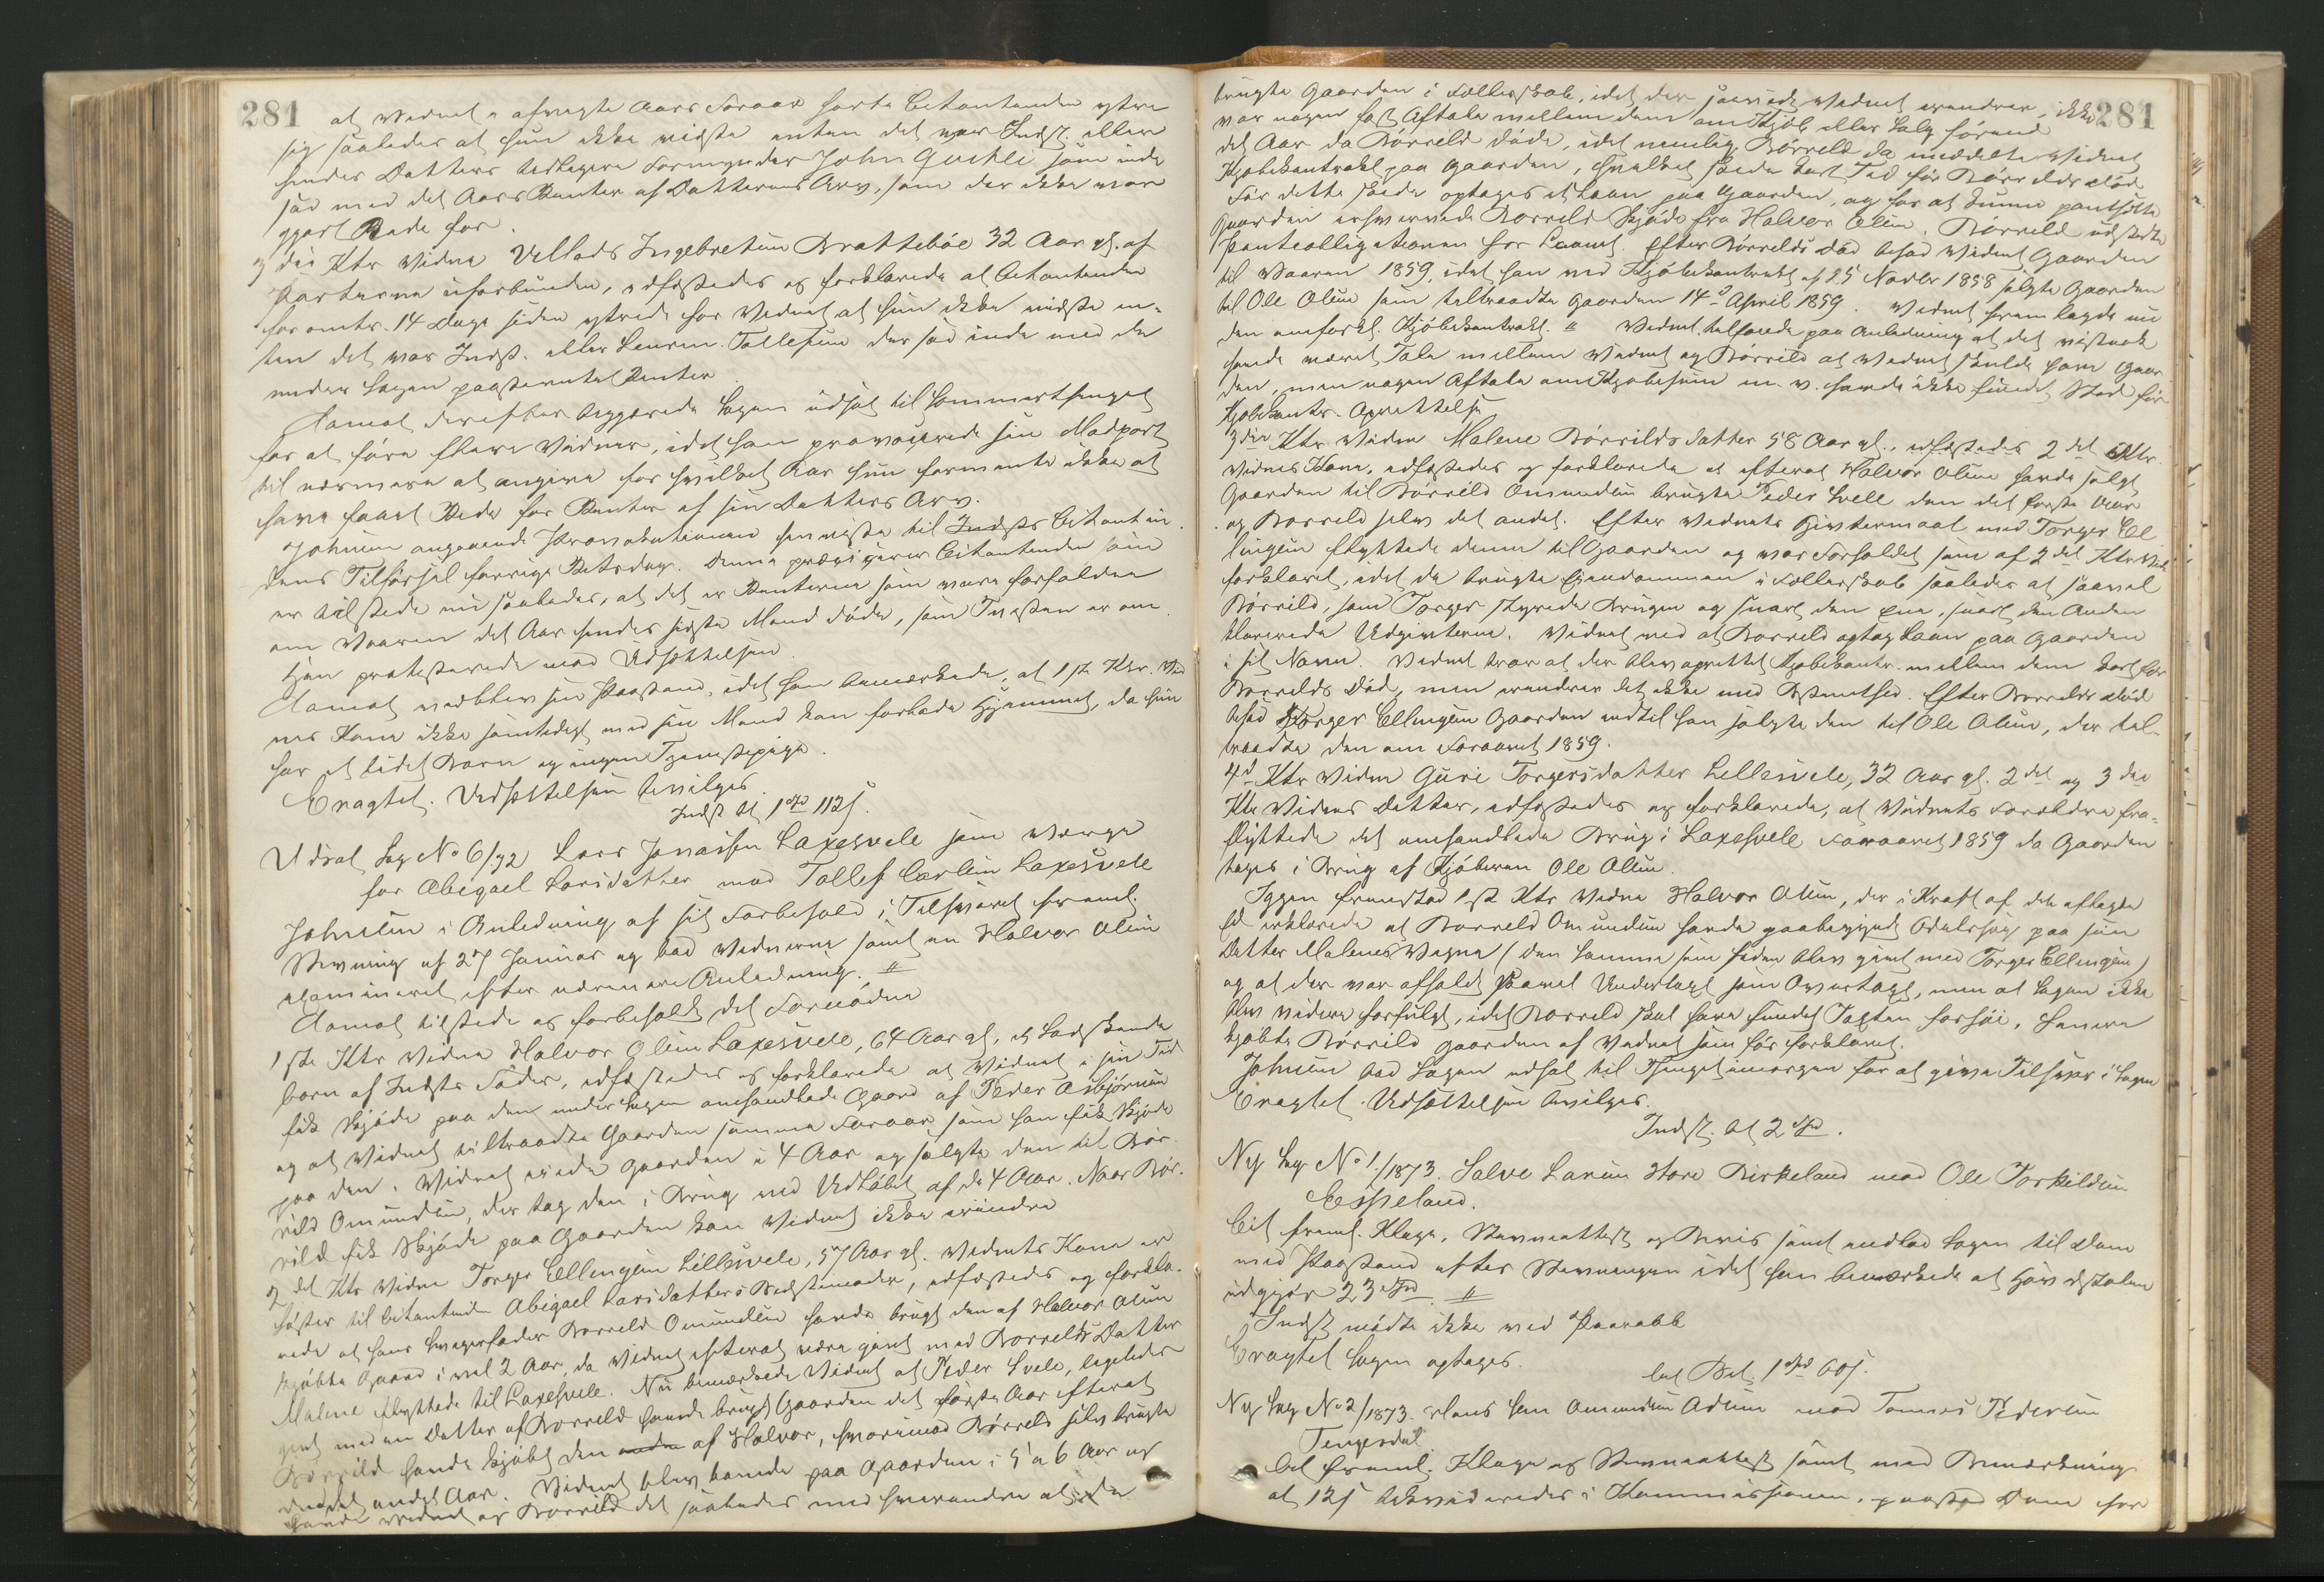 281
at Vidnet a afvigte Aars Foraar hørte Citantinden yttre
sig saaledes at hun ikke vidste enten det var Indst. eller
hendes Datters tidligere Formynder John Guskli som inde
sad med det Aars Renter af Datterens Arv, som der ikke var
gjort Rede for.
2 die Ktr Vidne Vellads Ingebretsen Brattebøe 32 Aar gl. af
Parterne uforbunden, edfæstedes og forklarede at Citantinden
for omtr. 14 Dage siden ytrede for Vidnet at hun ikke vidste en-
ten det var Indst. eller Lauren. Tollefsen der sad inde med de
under Sagen paastevnte Renter.
Aamot derefter begjærede Sagen udsat til Sommerthinget
for at føre flere Vidner, idet han provocerede sin Modpart
til nærmere at angive for hvilket Aar hun formente ikke at
have faaet Rede for Renter af sin Datters Arv.
Johnsen angaaende Provokationen henviste til Indsts Citantin
dens Tilførsel forrige Retsdag. Denne præciserer Citantinden som
er tilstede nu saaledes, at det er Renterne som vare forfaldne
om Vaaren det Aar hendes sidste Mand døde, som Tvisten er om.
Han protesterede mod Udsættelsen.
Aamot vedblev sin Paastand, idet han bemærkede, at 1ste Ktr. Vid
nes Kone ikke samtidigt med sin Mand kan forlade Hjemmet, da hun
har et lidet Barn og ingen Tjenestepige.
Eragtet. Udsættelsen bevilges.
Indst bt 1 spd 112 s.
Udsat Sag No 6/72 Lars Jonassen Laxesvele som Værge
for Abigael Larsdatter mod Tollef Carlsen Laxesvele
Johnsen i Anledning af sit Forbehold i Tilsvaret freml.
Stevning af 27 Januar og bad Vidnerne samt en Halvor Olsen
examineret efter nærmere Anledning. //
Aamot tilstede og forbeholdt det Fornødne
1ste Ktr Vidne Halvor Olsen Laxesvele, 64 Aar gl, et Sødskende
barn af Indsts Fader, edfæstedes og forklarede at Vidnet i sin Tid
fik Skjøde paa den under Sagen omhandlede Gaard af Peder Asbjørnsen
og at Vidnet tiltraadte Gaarden samme Foraar, som han fik Skjøde
paa den. Vidnet eiede Gaarden i 4 Aar og solgte den til Bør-
rild Omundsen, der tog den i Brug ved Udløbet af de 4 Aar. Naar Bør-
rild fik Skjøde paa Gaarden kan Vidnet ikke erindre
2 det Ktr Vidne Torger Ellingsen Lillesvele, 57 Aar gl. Vidnets Kone er
Søster til Citantinden Abigael Larsdatters Bedstemoder, edfæstedes og forkla-
rede at hans Svigerfader Borreld Omundsen havde brugt den af Halvor Olsen
kjøbte Gaard i vel 2 Aar, da Vidnet efterat være givt med Borrelds Datter
Malene flyttede til Laxesvele. Nu bemærkede Vidnet at Peder Svele, ligeledes
givt med en Datter af Borreld havde brugt Gaarden det første Aar efterat
Børrild havde kjøbt den af Halvor, hvorimod Børreld selv brugte
den det andet Aar. Vidnet blev boende paa Gaarden i 5 a 6 Aar og
havde Vidnet og Borreld det saaledes med hverandre at de
281
brugte Gaarden i Fællesskab, idet der saavidt Vidnet erindrer, ikke
var nogen fast Aftale mellem dem om Kjøb eller Salg førend
det Aar da Børreld døde, idet nemlig Børreld da meddelte Vidnet
Kjøbekontrakt paa Gaarden, hvilket skede kort Tid før Børrelds Død
Før dette skede optoges et Laan paa Gaarden, og for at kunne pantsætte
Gaarden erhvervede Borreld Skjøde fra Halvor Olsen. Børreld udstedte
Panteobligationen for Laanet. Efter Børrelds Død besad Vidnet Gaarden
til Vaaren 1859, idet han ved Kjøbekontrakt af 25 Novbr 1858 solgte Gaarden
til Ole Olsen som tiltraadte Gaarden 14de April 1859. Vidnet fremlagde nu
den omforkl. Kjøbekontrakt. // Vidnet tilføiede paa Anledning at det vistnok
havde været Tale mellem Vidnet og Børrild at Vidnet skulde have Gaar-
den, men nogen Aftale om Kjøbesum m. v. havde ikke fundet Sted før
Kjøbekontr. Oprettelse
3die Ktr Vidne Malene Børrildsdatter 58 Aar gl., edfæstedes 2det Ktr.
Vidnes Kone, edfæstedes og forklarede at efterat Halvor Olsen havde solgt
Gaarden til Børrild Omundsen brugte Peder Svele den det første Aar
og Borreld selv det andet. Efter Vidnets Givtermaal med Torger El
lingsen flyttede denne til Gaarden og var Forholdet som af 2det Ktr Vidne
forklaret, idet de brugte Eiendommen i Fællesskab saaledes at saavel
Børrild, som Torger styrede Brugen og snart den Ene, snart den Anden
klarerede Udgivterne. Vidnet ved at Borreld optog Laan paa Gaarden
i sit Navn. Vidnet tror at der blev oprettet Kjøbekontr. mellem dem kort før
Borrelds Død, men erindrer det ikke med Bestemthed. Efter Borrelds Død
besad Torger Ellingsen Gaarden indtil han solgte den til Ole Olsen, der til-
traadte den om Foraaret 1859.
4de Ktr Vidne Guri Torgersdatter Lillesvele, 32 Aar gl. 2det og 3die
Ktr Vidnes Datter, edfæstedes og forklarede, at Vidnets Forældre fra-
flyttede det omhandlede Brug i Laxesvele Foraaret 1859 da Gaarden
toges i Brug af Kjøberen Ole Olsen.
Igjen fremstod 1ste Ktr Vidne Halvor Olsen, der i Kraft af den aflagte
Ed erklærede at Borreld Omundsen havde paabegyndt Odelssag paa sin
Datter Malenes Vegne (den samme som siden blev givt med Torger Ellingsen)
og at der var afholdt saavel Undertaxt som Overtaxt, men at Sagen ikke
blev videre forfulgt, idet Borreld skal have fundet Taxten for høi. Senere
kjøbte Børrild Gaarden af Vidnet som før forklaret.
Johnsen bad Sagen udsat til Thinget imorgen for at give Tilsvar i Sagen
Eragtet. Udsættelsen bevilges.
Indst. bt 2 spd.
Ny Sag No 1/1873. Salve Larsen Store Birkeland mod Ole Torkildsen
Espeland.
Cit freml. Klage, Stevneattest og Bevis samt indlod Sagen til Dom
med Paastand efter Stevningen idet han bemærkede at Hovedstolen
udgjør 23 spd. //
Indst mødte ikke ved Paaraab
Eragtet Sagen optages.
bet. 1 spd 60 s.
Ny Sag No 2/1873. Hans Omundsen mod Tønnes Pedersen
Tengesdal.
Cit freml. Klage og Stevneattest samt med Bemærkning
at 12 s i Kommissionen, paastod Dom for